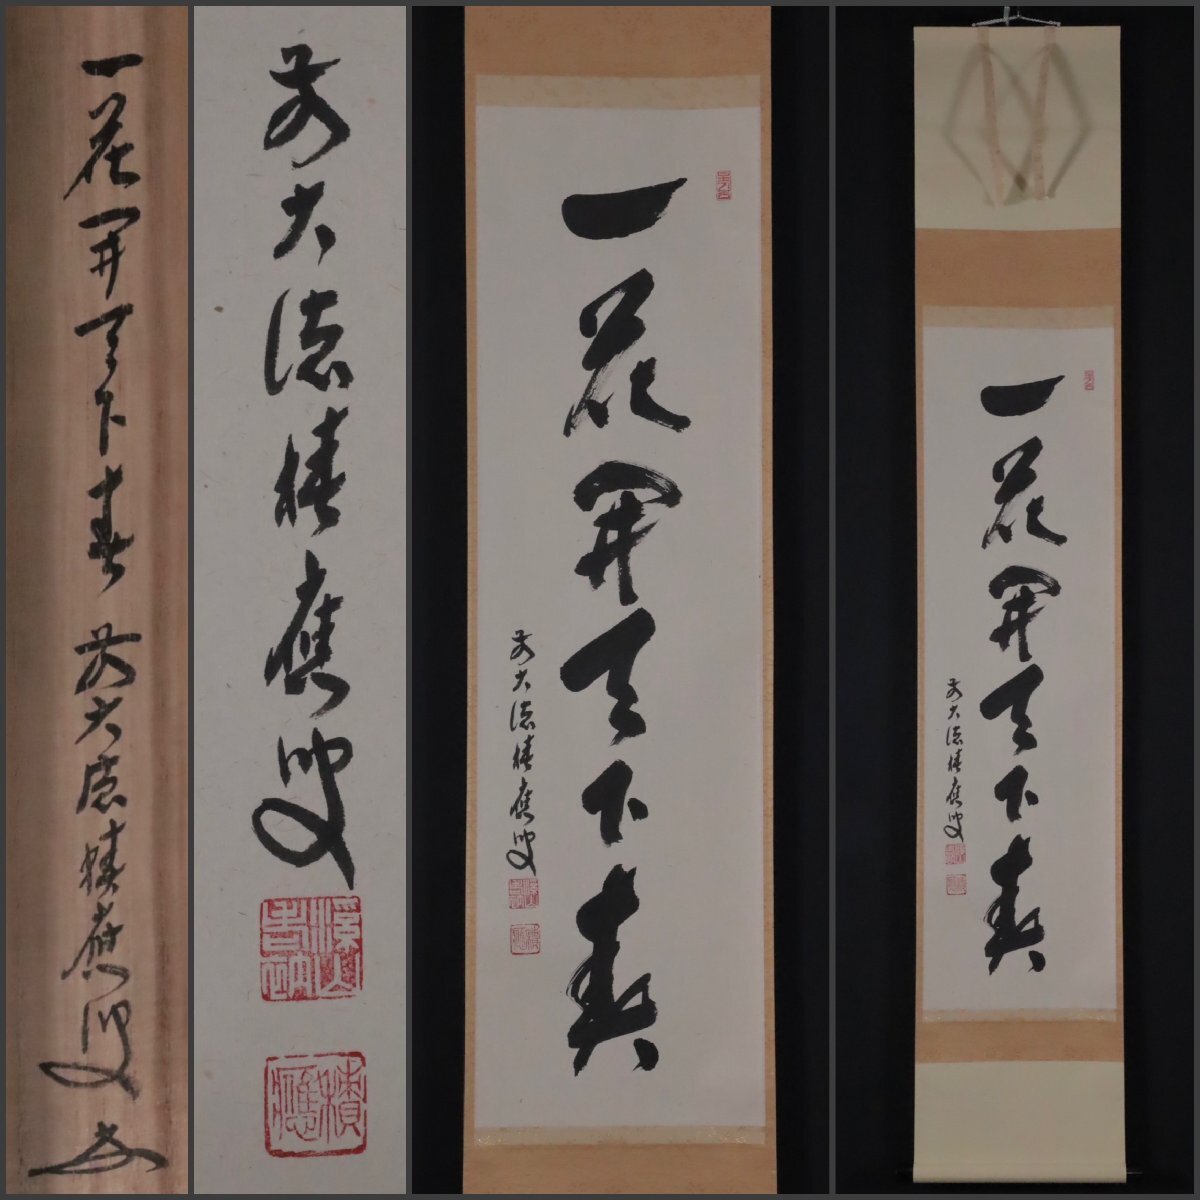 一花開天下春 前大徳積應叟 書
前大徳積應叟
積應
一花開天下春
前大徳積應叟
積應
一花開天下春
前大徳積應叟